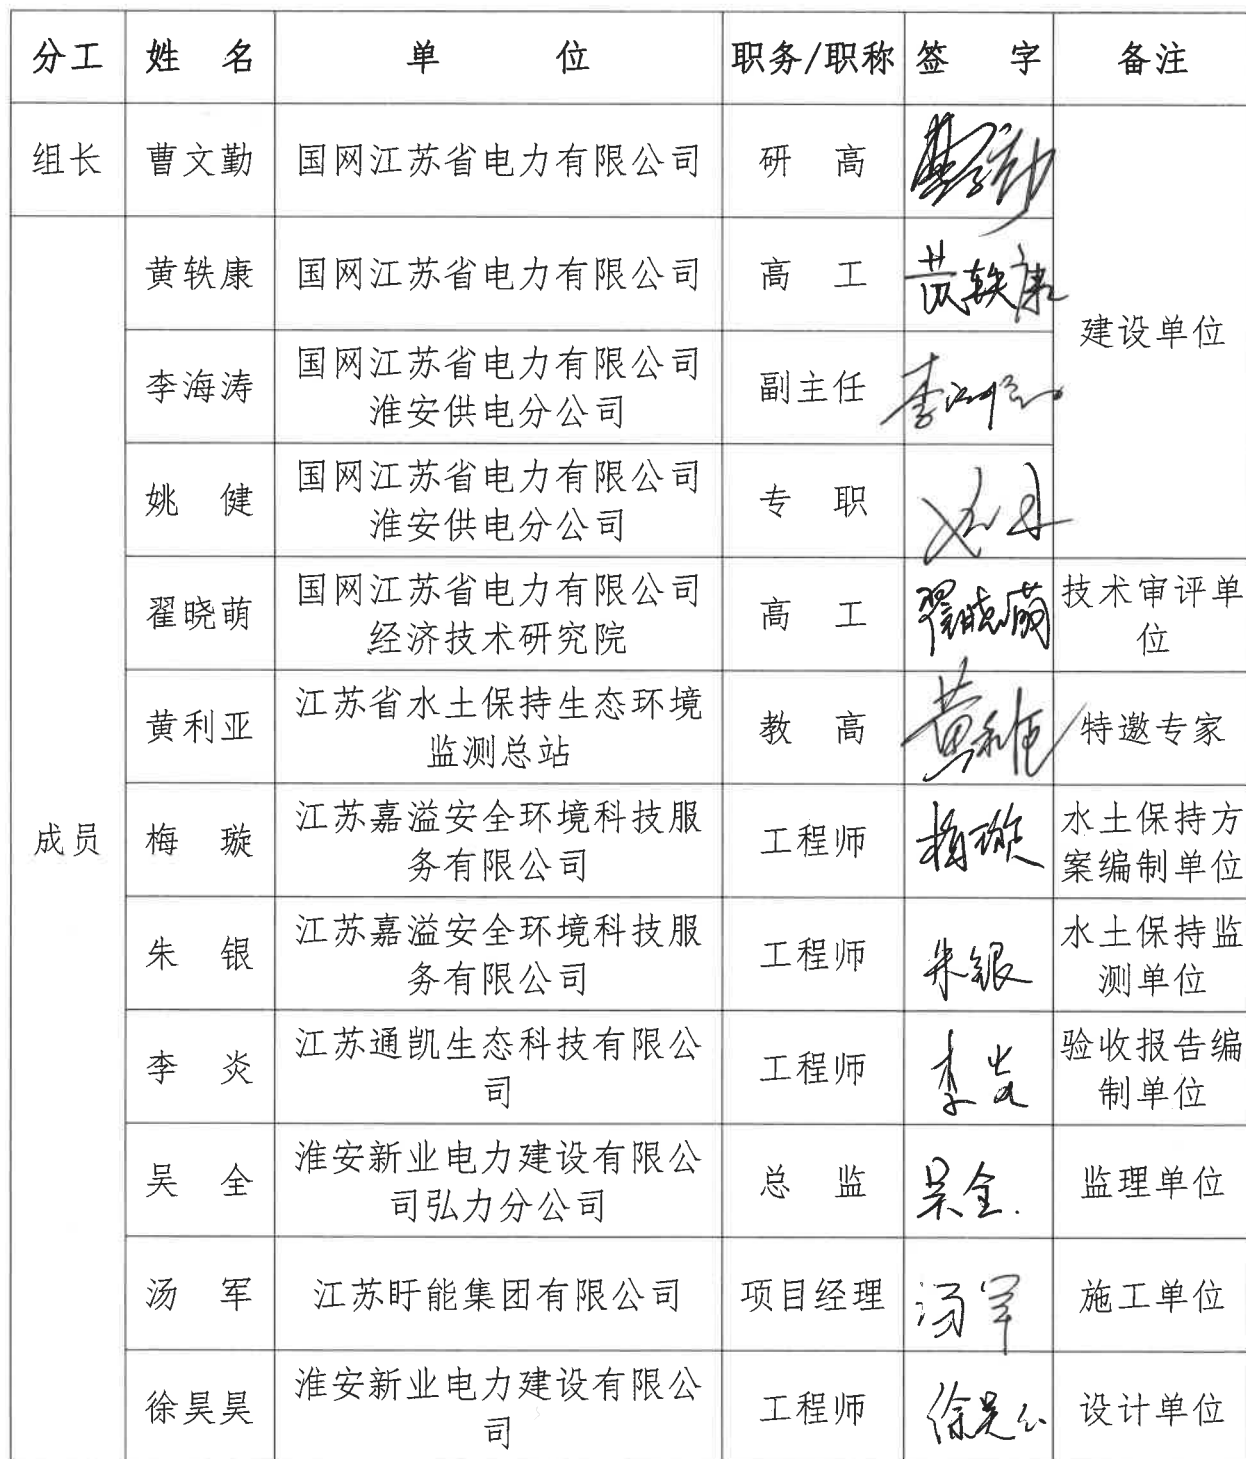 分工 姓 名 单 位 职务/职称 签 字 备注
组长 曹文勤 国网江苏省电力有限公司 研 高 曹文勤
黄轶康 国网江苏省电力有限公司 高 工 黄轶康
建设单位
李海涛 国网江苏省电力有限公司
淮安供电分公司 副主任 李海涛
姚 健 国网江苏省电力有限公司
淮安供电分公司 专 职
翟晓萌 国网江苏省电力有限公司
经济技术研究院 高 工 翟晓萌 技术审评单
位
黄利亚 江苏省水土保持生态环境
监测总站 教 高 黄利亚 特邀专家
成员 梅 璇 江苏嘉溢安全环境科技服
务有限公司 工程师 梅璇 水土保持方
案编制单位
朱 银 江苏嘉溢安全环境科技服
务有限公司 工程师 朱银 水土保持监
测单位
李 炎 江苏通凯生态科技有限公
司 工程师 李炎 验收报告编
制单位
吴 全 淮安新业电力建设有限公
司弘力分公司 总 监 吴全. 监理单位
汤 军 江苏盱能集团有限公司 项目经理 汤军 施工单位
徐昊昊 淮安新业电力建设有限公
司 工程师 徐昊 设计单位